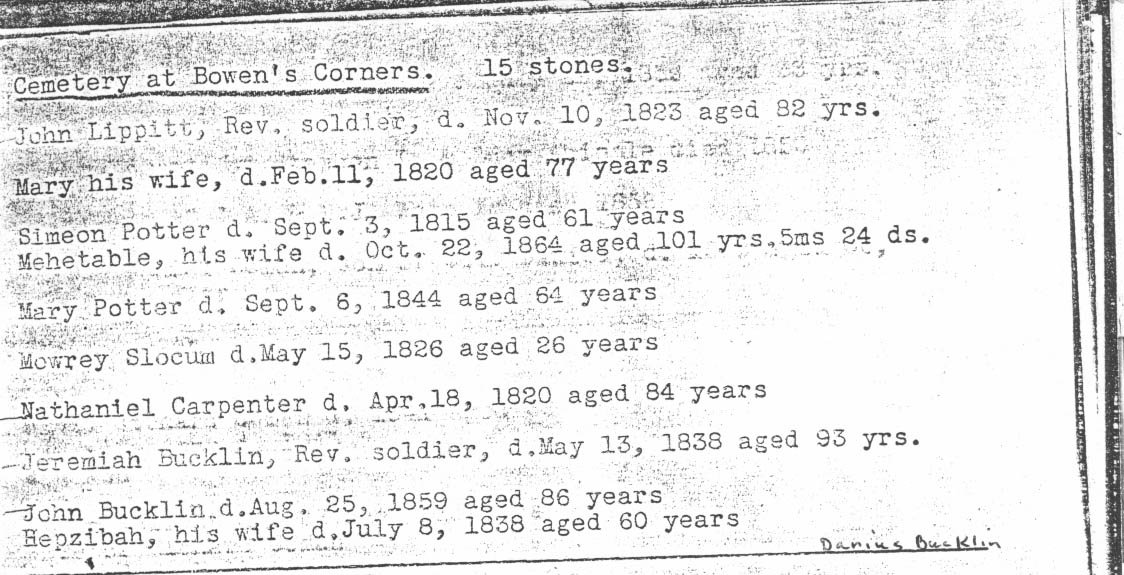 Cemetery at Bowen's Corners. 15 stones.
John Lippitt, Rev. soldier, d. Nov. 10, 1823 aged 82 yrs.
Mary his wife, d.Feb.11, 1820 aged 77 years
Simeon Potter d. Sept. 3, 1815 aged 61 years
Mehetable, his wife d. Oct. 22, 1864 aged 101 yrs.5ms 24 ds.
Mary Potter d. Sept. 6, 1844 aged 64 years
Mowrey Slocum d.May 15, 1826 aged 26 years
Nathaniel Carpenter d. Apr.18, 1820 aged 84 years
Jeremiah Bucklin, Rev. soldier, d.May 13, 1838 aged 93 yrs.
John Bucklin d.Aug. 25, 1859 aged 86 years
Hepzibah, his wife d.July 8, 1838 aged 60 years
Darius Bucklin